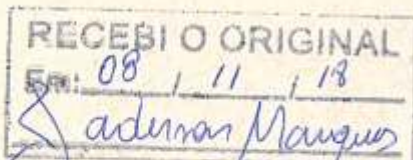 RECEBI O ORIGINAL
Em: 08 / 11 / 18
Marques